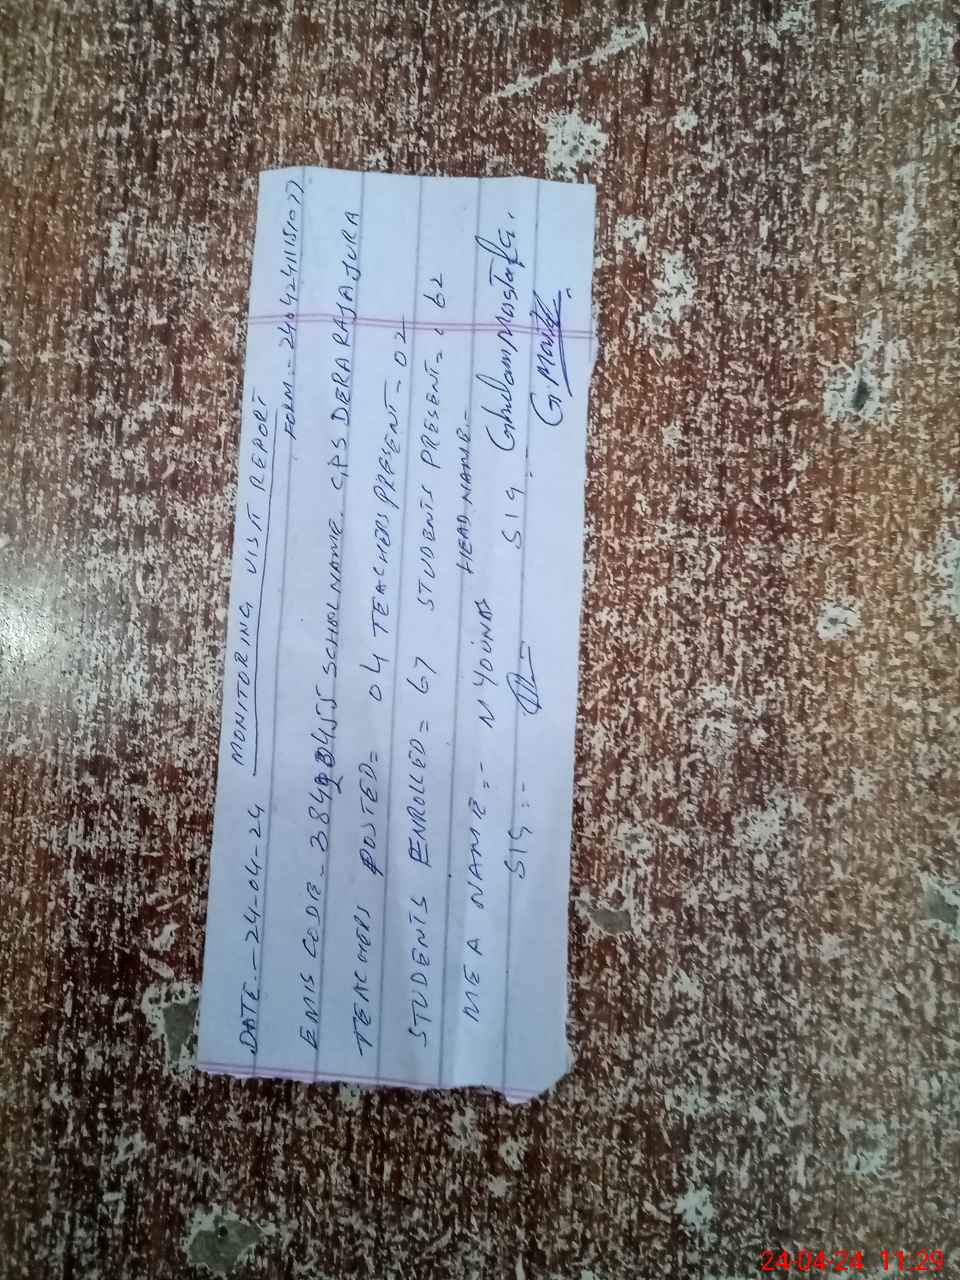 DATE:- 24-04-24 MONITORING VISIT REPORT
FORM:- 240424115
EMIS CODE- SCHOOL NAME. GPS DERA RAJAJURA
TEACHERS POSTED= 04 TEACHERS PRESENT=02
STUDENTS ENROLLED= 67 STUDENTS PRESENT= 62
MEA NAME:- N YOUNAS HEAD NAME- Ghulam Mustafa.
SIG:- SIG:-
G. 
24-04-24 11:29